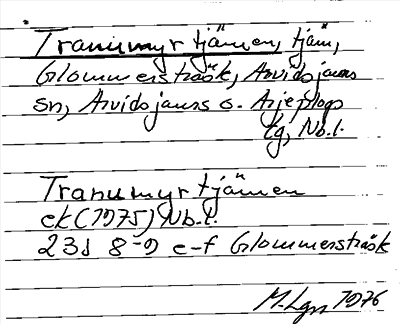 Tranumyrtjärnen, tjärn,
Glommersträsk, Arvidsjaurs
sn, Arvidsjaurs o. Arjeplogs
tg, Nb.l.
Tranumyrtjärnen
ek (1975) Nb.l.
23J 8-9 e-f Glommersträsk
M. Lgn 1976